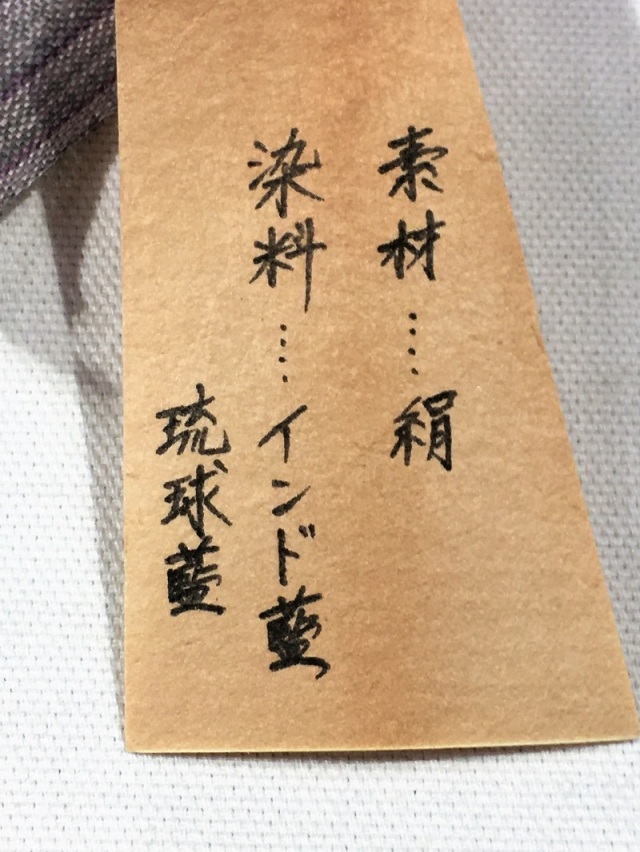 素材……絹
染料……インド藍
琉球藍